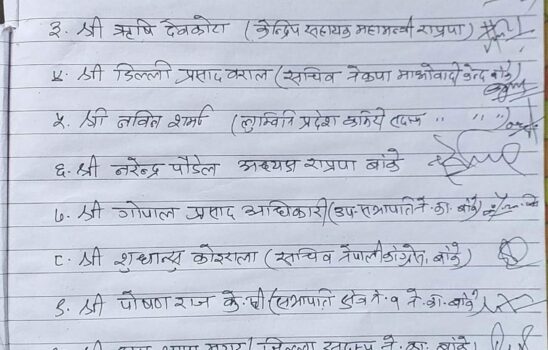 ३. श्री ऋषि देवकोटा (केन्द्रिय सहायक महामन्त्री राप्रपा)
४. श्री डिल्ली प्रसाद वराल (सचिव नेकपा माओवादी केन्द्र बाँके)
५. श्री नविन शर्मा (लुम्विनि प्रदेश कमिटि सदस्य " " ")
६. श्री नरेन्द्र पौडेल अध्यक्ष राप्रपा बांके
७. श्री गोपाल प्रसाद अधिकारी (उप-सभापति ने.का. बाँके)
८. श्री कोइराला (सचिव नेपाली काँग्रेस, बाँके)
९. श्री पोषण राज के.सी (सभापति क्षेत्र नं. १ ने.का. बाँके)
श्री जिल्ला सदस्य ने. का. बाँके)